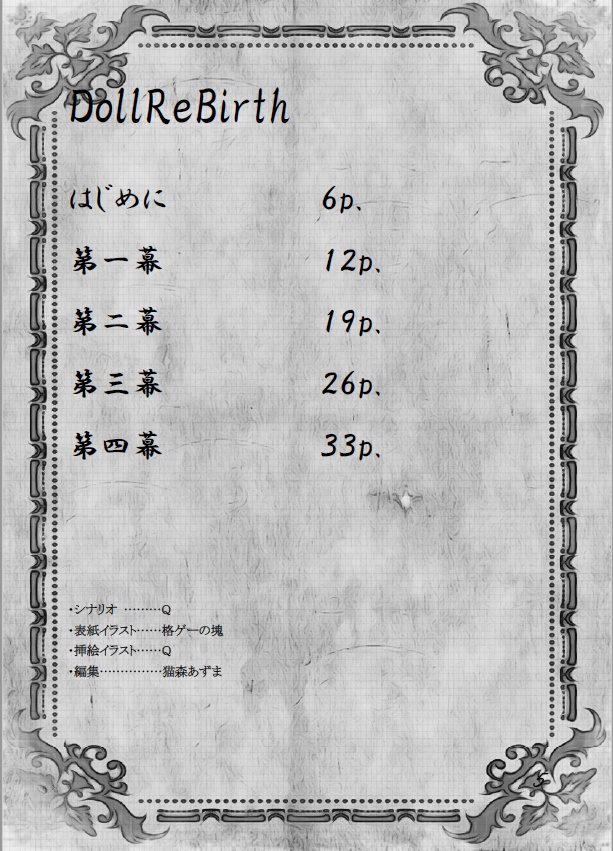 DollReBirth
はじめに 6p.
第一幕 12p.
第二幕 19p.
第三幕 26p.
第四幕 33p.
・シナリオ ………Q
・表紙イラスト……格ゲーの塊
・挿絵イラスト……Q
・編集……………猫森あずま
5